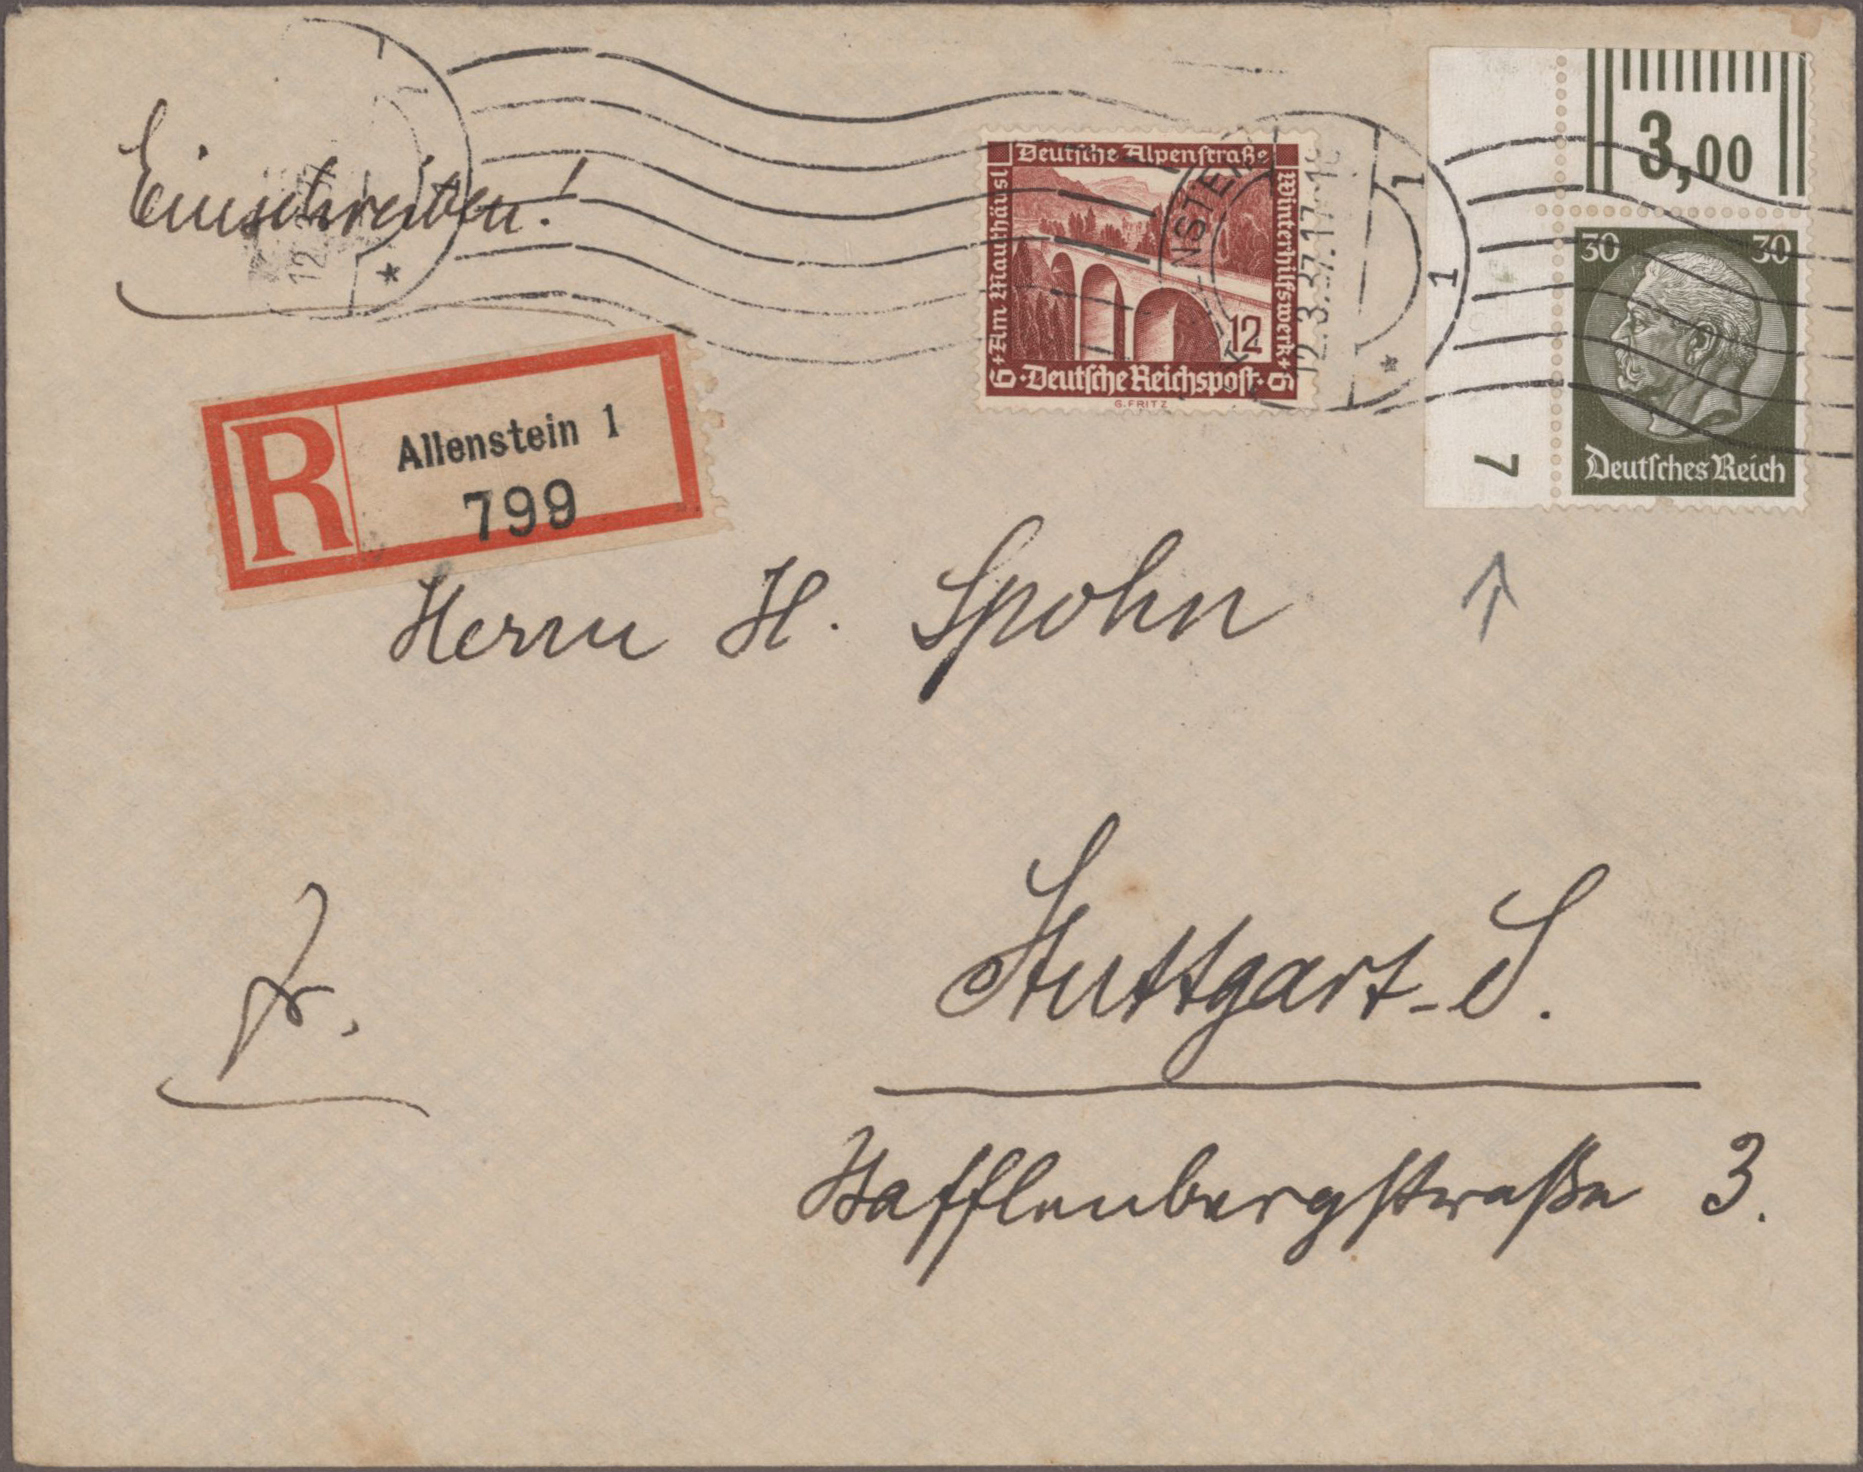 Einschreiben!
Deutsche Alpenstraße
Am Mauthäusl
Winterhilfswerk
12
6 Deutsche Reichspost 6
G. FRITZ
12.3.37.17-18
1
1
*
12
*
3,00
30 30
Deutsches Reich
7
R Allenstein 1
799
Herrn H. Spohn
Stuttgart-S.
fr.
Hafflenbergstraße 3.